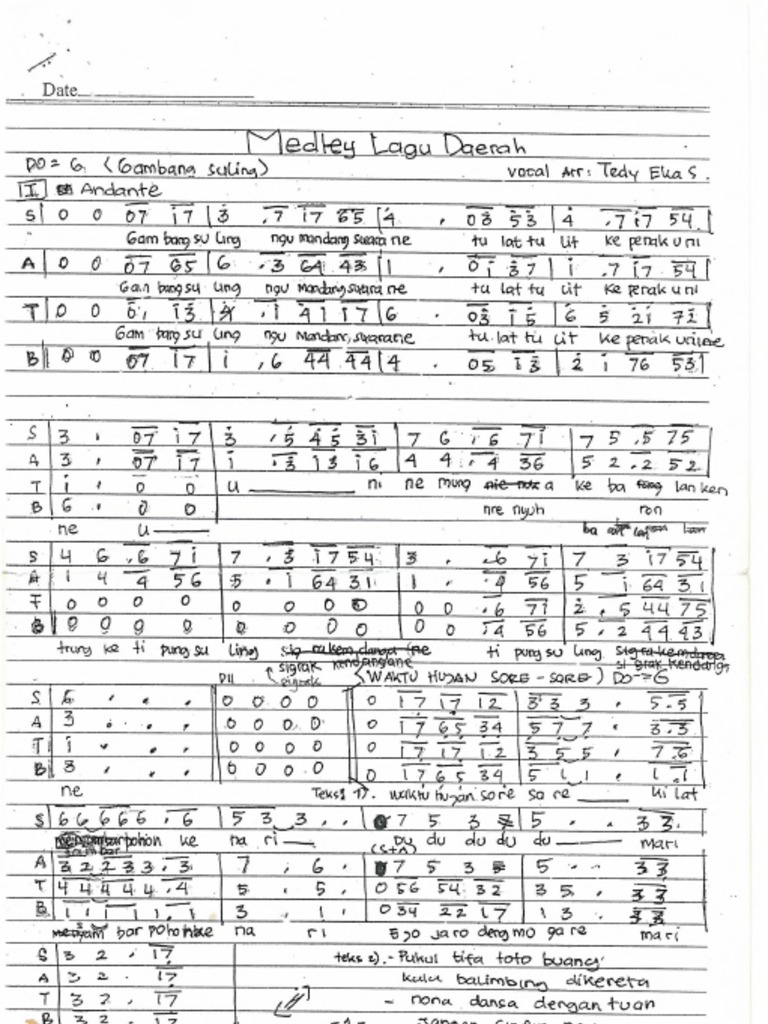 Date
Medley Lagu Daerah
DO = G (Gambang Suling)
vocal Arr: Tedy Eka S.
I Andante
S 0 0 07 i7 3 .7 i7 65 4 . 03 53 4 .7 i7 54
Gam bang su ling ngu mandang suara ne tu lat tu lit ke penak u ni
A 0 0 07 65 6 .3 64 43 1 . 0i 37 i .7 i7 54
Gam bang su ling ngu mandang suara ne tu lat tu lit ke penak u ni
T 0 0 0i i3 4 .i 4i i7 6 . 03 i5 6 5 2i 72
Gam bang su ling ngu Mandang suarane tu lat tu lit ke penak unine
B 0 0 07 i7 i .6 44 44 4 . 05 i3 2 i 76 53
S 3 . 07 i7 3 .5 45 3i 7 6 .6 7i 7 5 .5 75
A 3 . 07 i7 i .3 i3 i6 4 4 .4 36 5 2 .2 52
T i . 0 0 u ni ne mung a ke ba lan ken
B 6 . 0 0 nre nyuh ron
ne u
S 4 6 .6 7i 7 .3 i7 54 3 . .6 7i 7 3 i7 54
A 1 4 4 56 5 . i 64 31 1 . .4 56 5 i 64 31
T 0 0 0 0 0 0 0 0 0 0 .6 7i 2 .5 44 75
B 0 0 0 0 0 0 0 0 0 0 .4 56 5 .2 44 43
trung ke ti pung su ling ti pung su ling
sigrak kendangane si grak kendanga
(WAKTU HUJAN SORE-SORE) DO = G
S 6 . . . 0 0 0 0 0 17 17 12 3 3 3 . 5.5
A 3 . . . 0 0 0 0 0 17 65 34 5 7 7 . 3.3
T i . . . 0 0 0 0 0 17 17 12 3 5 5 . 7.6
B 3 . . . 0 0 0 0 0 17 65 34 5 1 1 . 1.1
ne Teks 1). waktu hujan sore so re ki lat
S 66 66 6 .6 5 3 3 . . 7 5 3 5 . . 33
bar pohon ke na ri Du du du du du mari
A 32 23 3.3 7 . 6 . 7 5 3 5 . . 33
T 44 44 4.4 5 . 5 . 0 56 54 32 3 5 . 33
B 11 11 1.1 3 . 1 . 0 34 22 17 1 3 . 33
bar pohon ke na ri Ego jaro deng mo ga re mari
S 3 2 . 17 teks 2). - Pukul tifa toto buang
A 3 2 . 17 kulu balimbing dikereta
T 3 2 . 17 - nona dansa dengan tuan
B 3 2 . 17